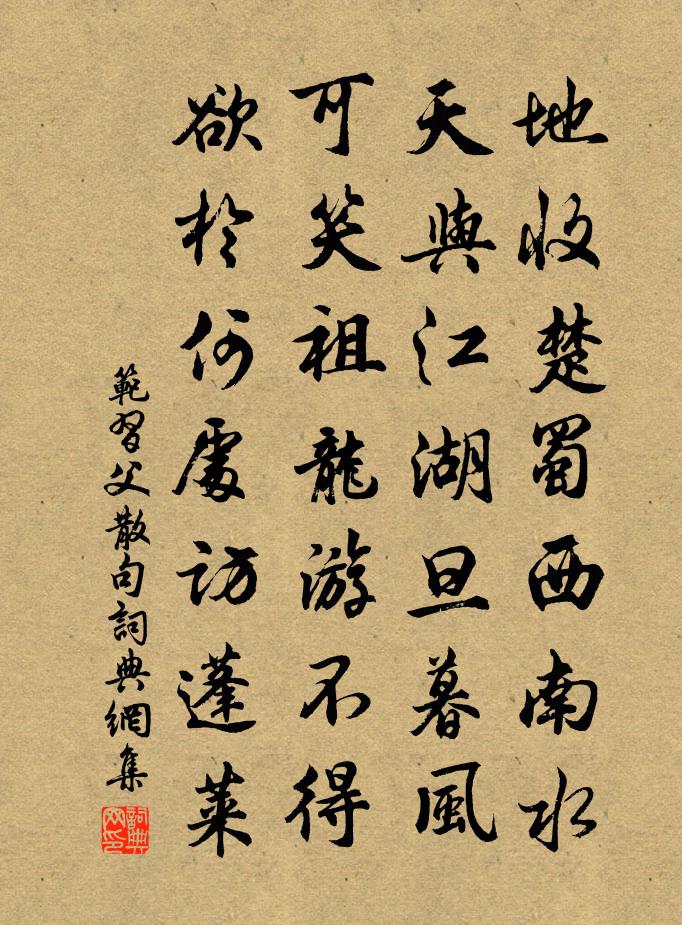 地收楚蜀西南水
天與江湖旦暮風
可笑祖龍游不得
欲於何處訪蓬萊
範習父散句詞典網集
詞典網印